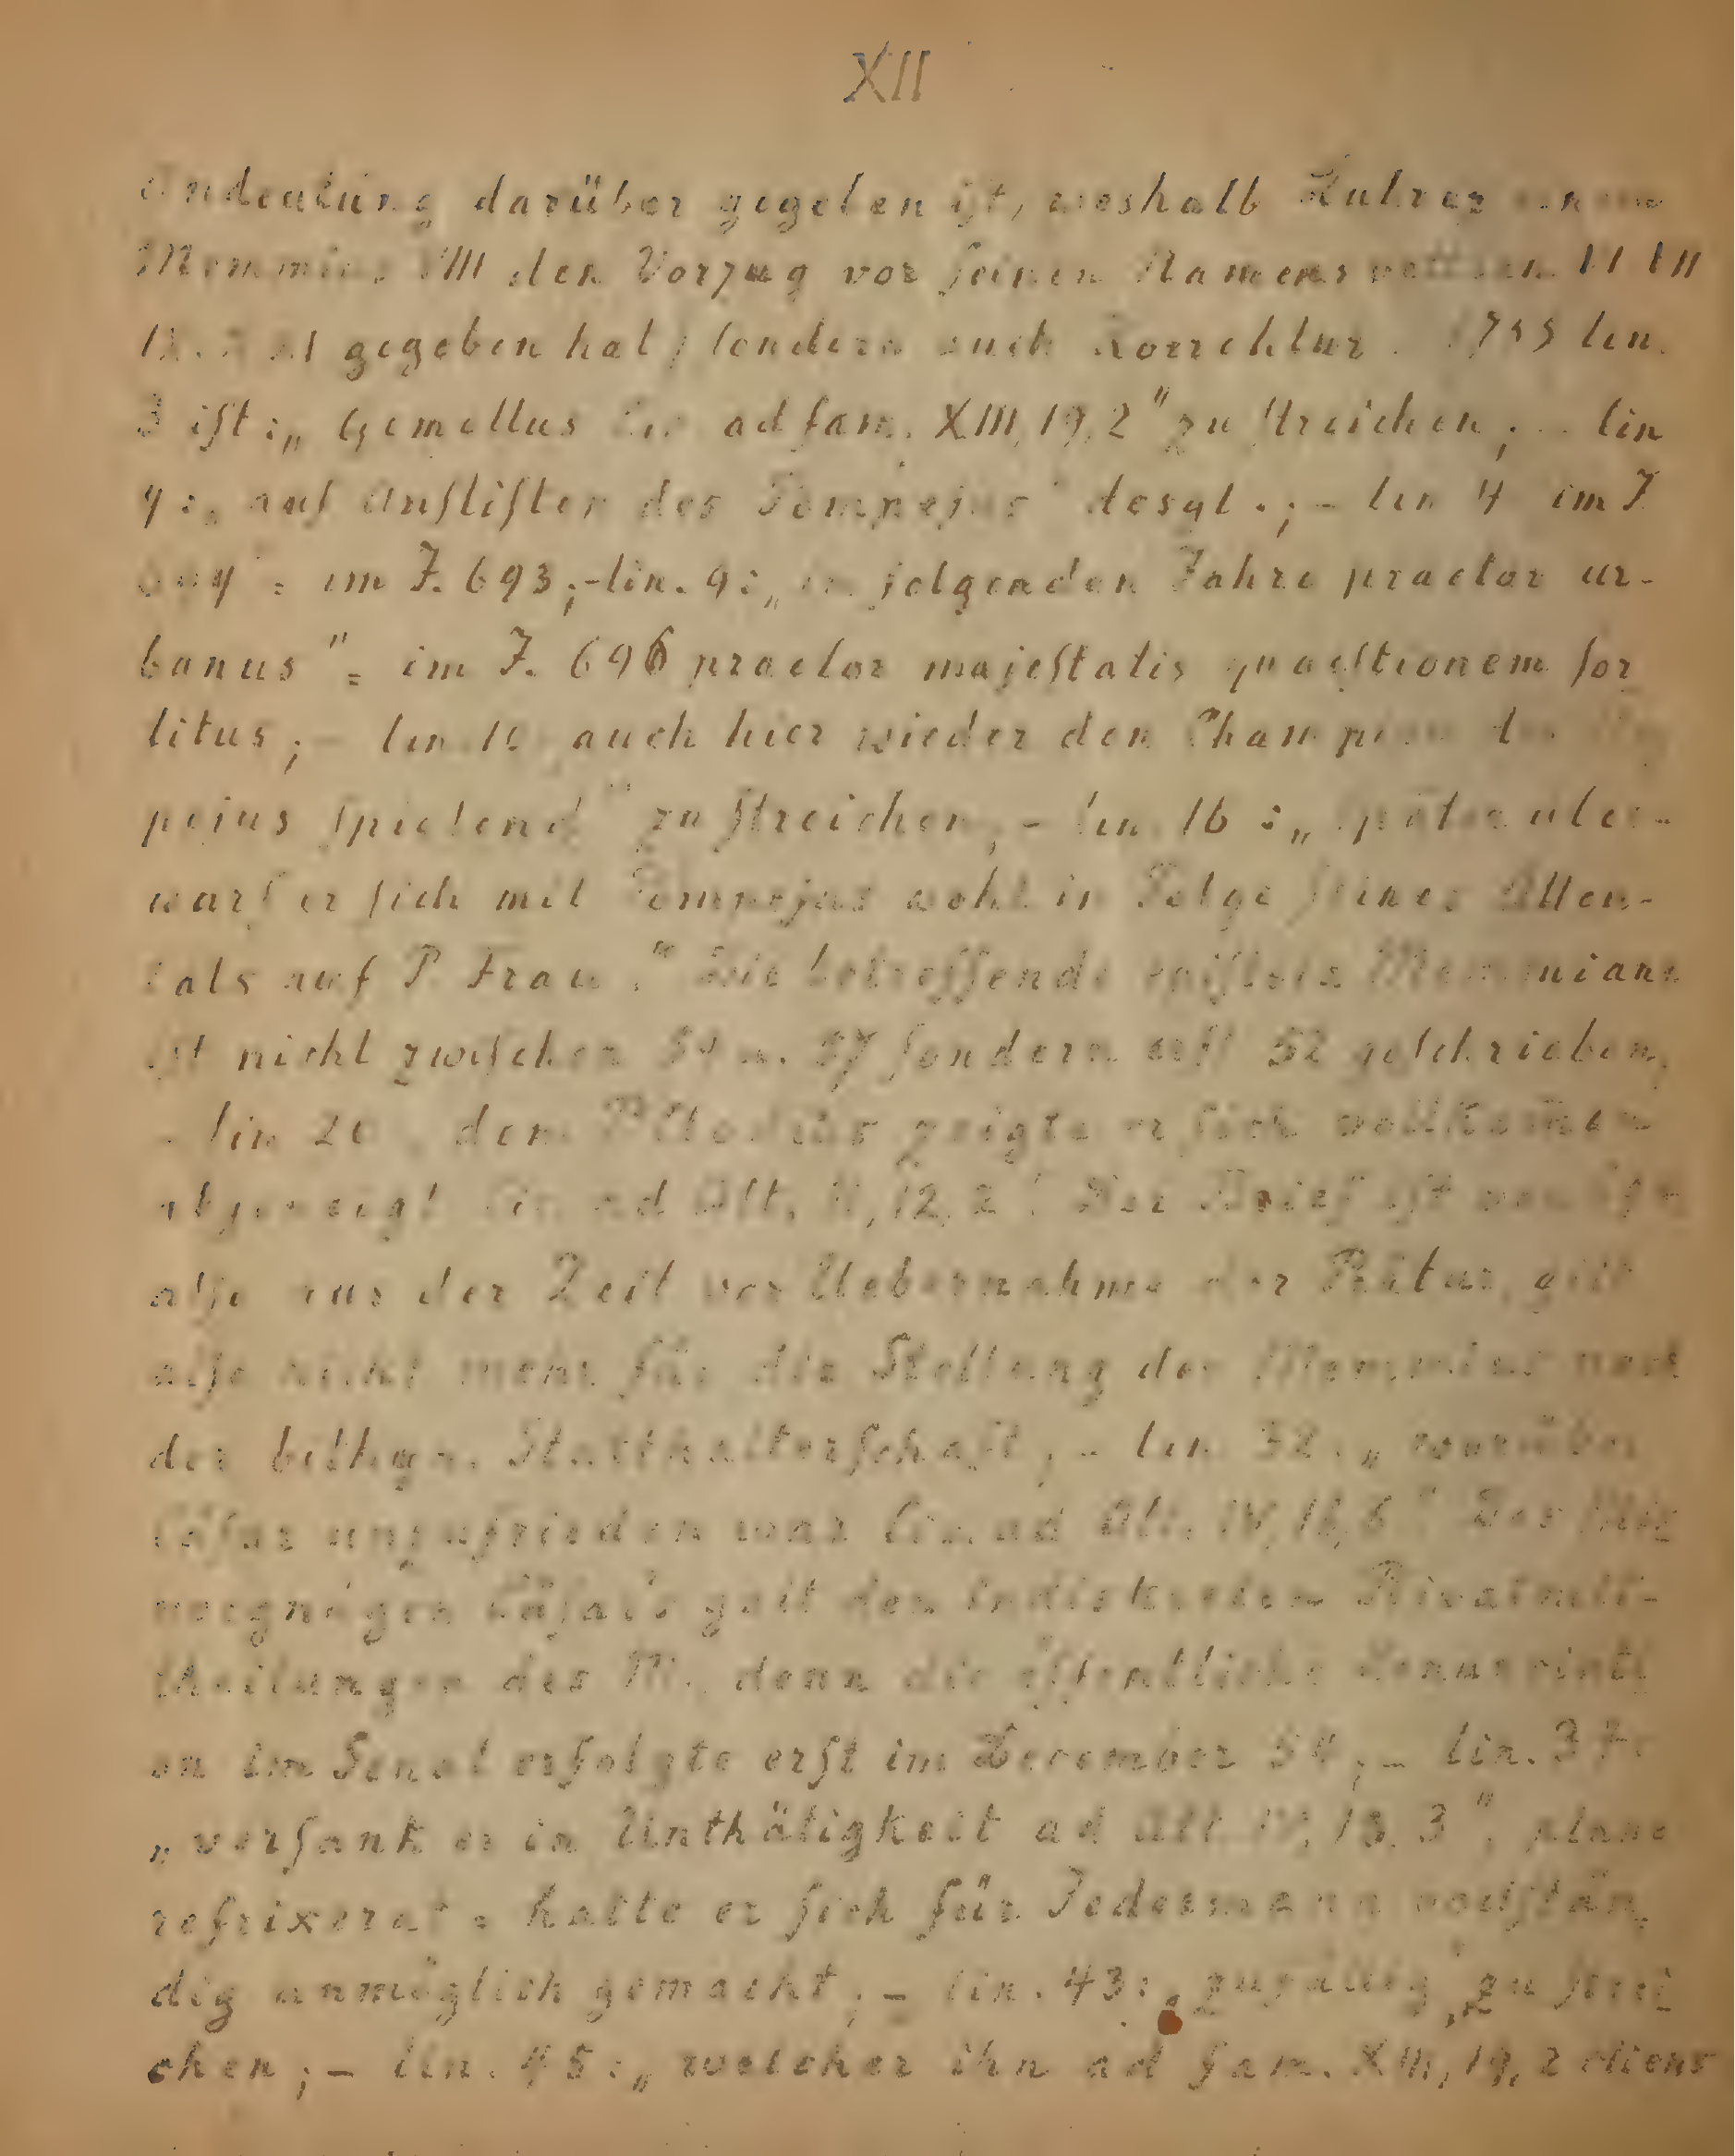 XII
Andeutung darüber gegeben ist, weshalb
Memmius VIII den Vorzug vor seinen Namensvettern
gegeben hat, sondern auch Korrektur. 755 lin.
3 ist: „Gemellus Cic ad fam. XIII, 19, 2" zu streichen; - lin
auf Anstiften des Pompejus" desgl.; - lin 4 im J
= im J. 693; - lin. 9: „im folgenden Jahre praetor ur-
banus" = im J. 696 praetor majestatis quaestionem sor
titus; - lin 10 auch hier wieder den Champion des
pejus spielend" zu streichen; - lin 16: „später über-
warf er sich mit Pompejus wohl in Folge seines Atten-
tats auf P. Frau." Die betreffende epistola Memmiana
ist nicht zwischen 59 u. 57 sondern erst 52 geschrieben,
- lin 20 „dem P Clodius zeigte er sich vollkommen
abgeneigt Cic ad Att. II, 12, 2". Der Brief ist
also aus der Zeit vor Uebernahme der Prätur, gilt
also nicht mehr für die Stellung des Memmius nach
der bithyn. Statthalterschaft; - lin 32: „worüber
Cäsar unzufrieden war Cic. ad Att. IV, 16, 6". Das Mis
vergnügen Cäsars galt den indiskreten Privatmit-
theilungen des M., denn die öffentliche Denunciati
on im Senat erfolgte erst im December 54; - lin. 37:
„versank er in Unthätigkeit ad Att IV, 18, 3", plane
refrixerat = hatte er sich für Jedermann vollstän
dig unmöglich gemacht; - lin. 43: „zufällig" zu strei
chen; - lin. 45: „welcher ihn ad fam. XIII, 19, 2 cliens